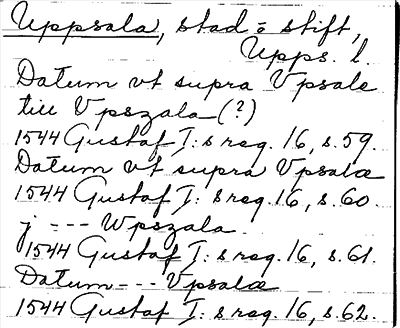 Uppsala, stad o stift,
Upps. l.
Datum vt supra Vpsale
till Vpszala (?)
1544 Gustaf I:s reg. 16, s. 59.
Datum vt supra Vpsalæ
1544 Gustaf I:s reg. 16, s. 60.
j --- Wpszala.
1544 Gustaf I:s reg. 16, s. 61.
Datum --- Vpsalæ
1544 Gustaf I:s reg. 16, s. 62.